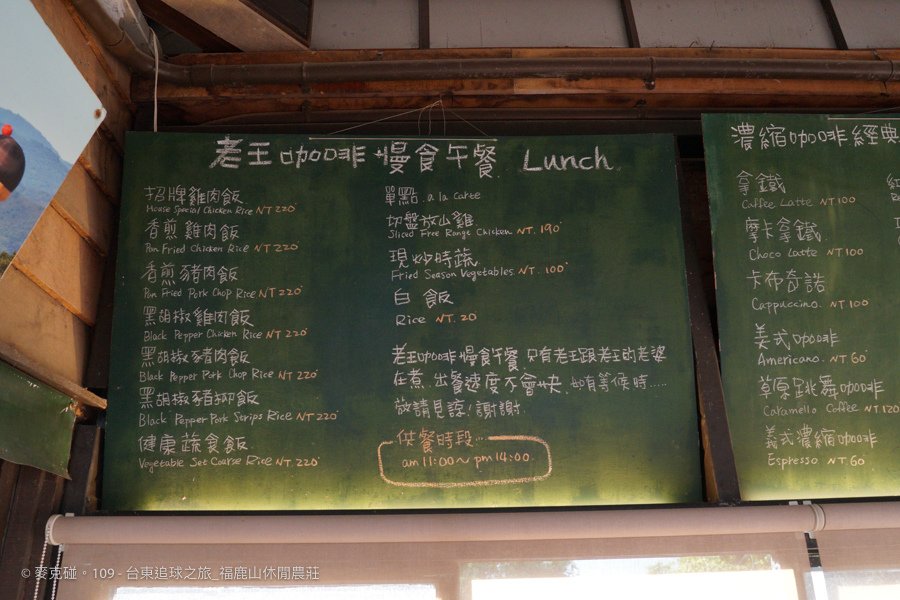 老王咖啡慢食午餐 Lunch
招牌雞肉飯
House Special Chicken Rice NT 220
香煎雞肉飯
Pan Fried Chicken Rice NT 220
香煎豬肉飯
Pan Fried Pork Chop Rice NT 220
黑胡椒雞肉飯
Black Pepper Chicken Rice NT 220
黑胡椒豬肉飯
Black Pepper Pork Chop Rice NT 220
黑胡椒豬柳飯
Black Pepper Pork Strips Rice NT 220
健康蔬食飯
Vegetable Set Coarse Rice NT. 220
單點 a la carte
切盤放山雞
Sliced Free Range Chicken NT. 190
現炒時蔬
Fried Season Vegetables NT. 100
白飯
Rice NT. 20
老王咖啡慢食午餐 只有老王跟老王的老婆
在煮,出餐速度不會快,如有等候時.....
敬請見諒!謝謝
供餐時段...
am 11:00~pm 14:00
濃縮咖啡經典
拿鐵
Caffee Latte NT 100
摩卡拿鐵
Choco Latte NT 100
卡布奇諾
Cappuccino. NT 100
美式咖啡
Americano. NT 60
草原跳舞咖啡
Caramello Coffee NT 120
義式濃縮咖啡
Espresso NT 60
© 麥克碰。109 - 台東追球之旅_福鹿山休閒農莊